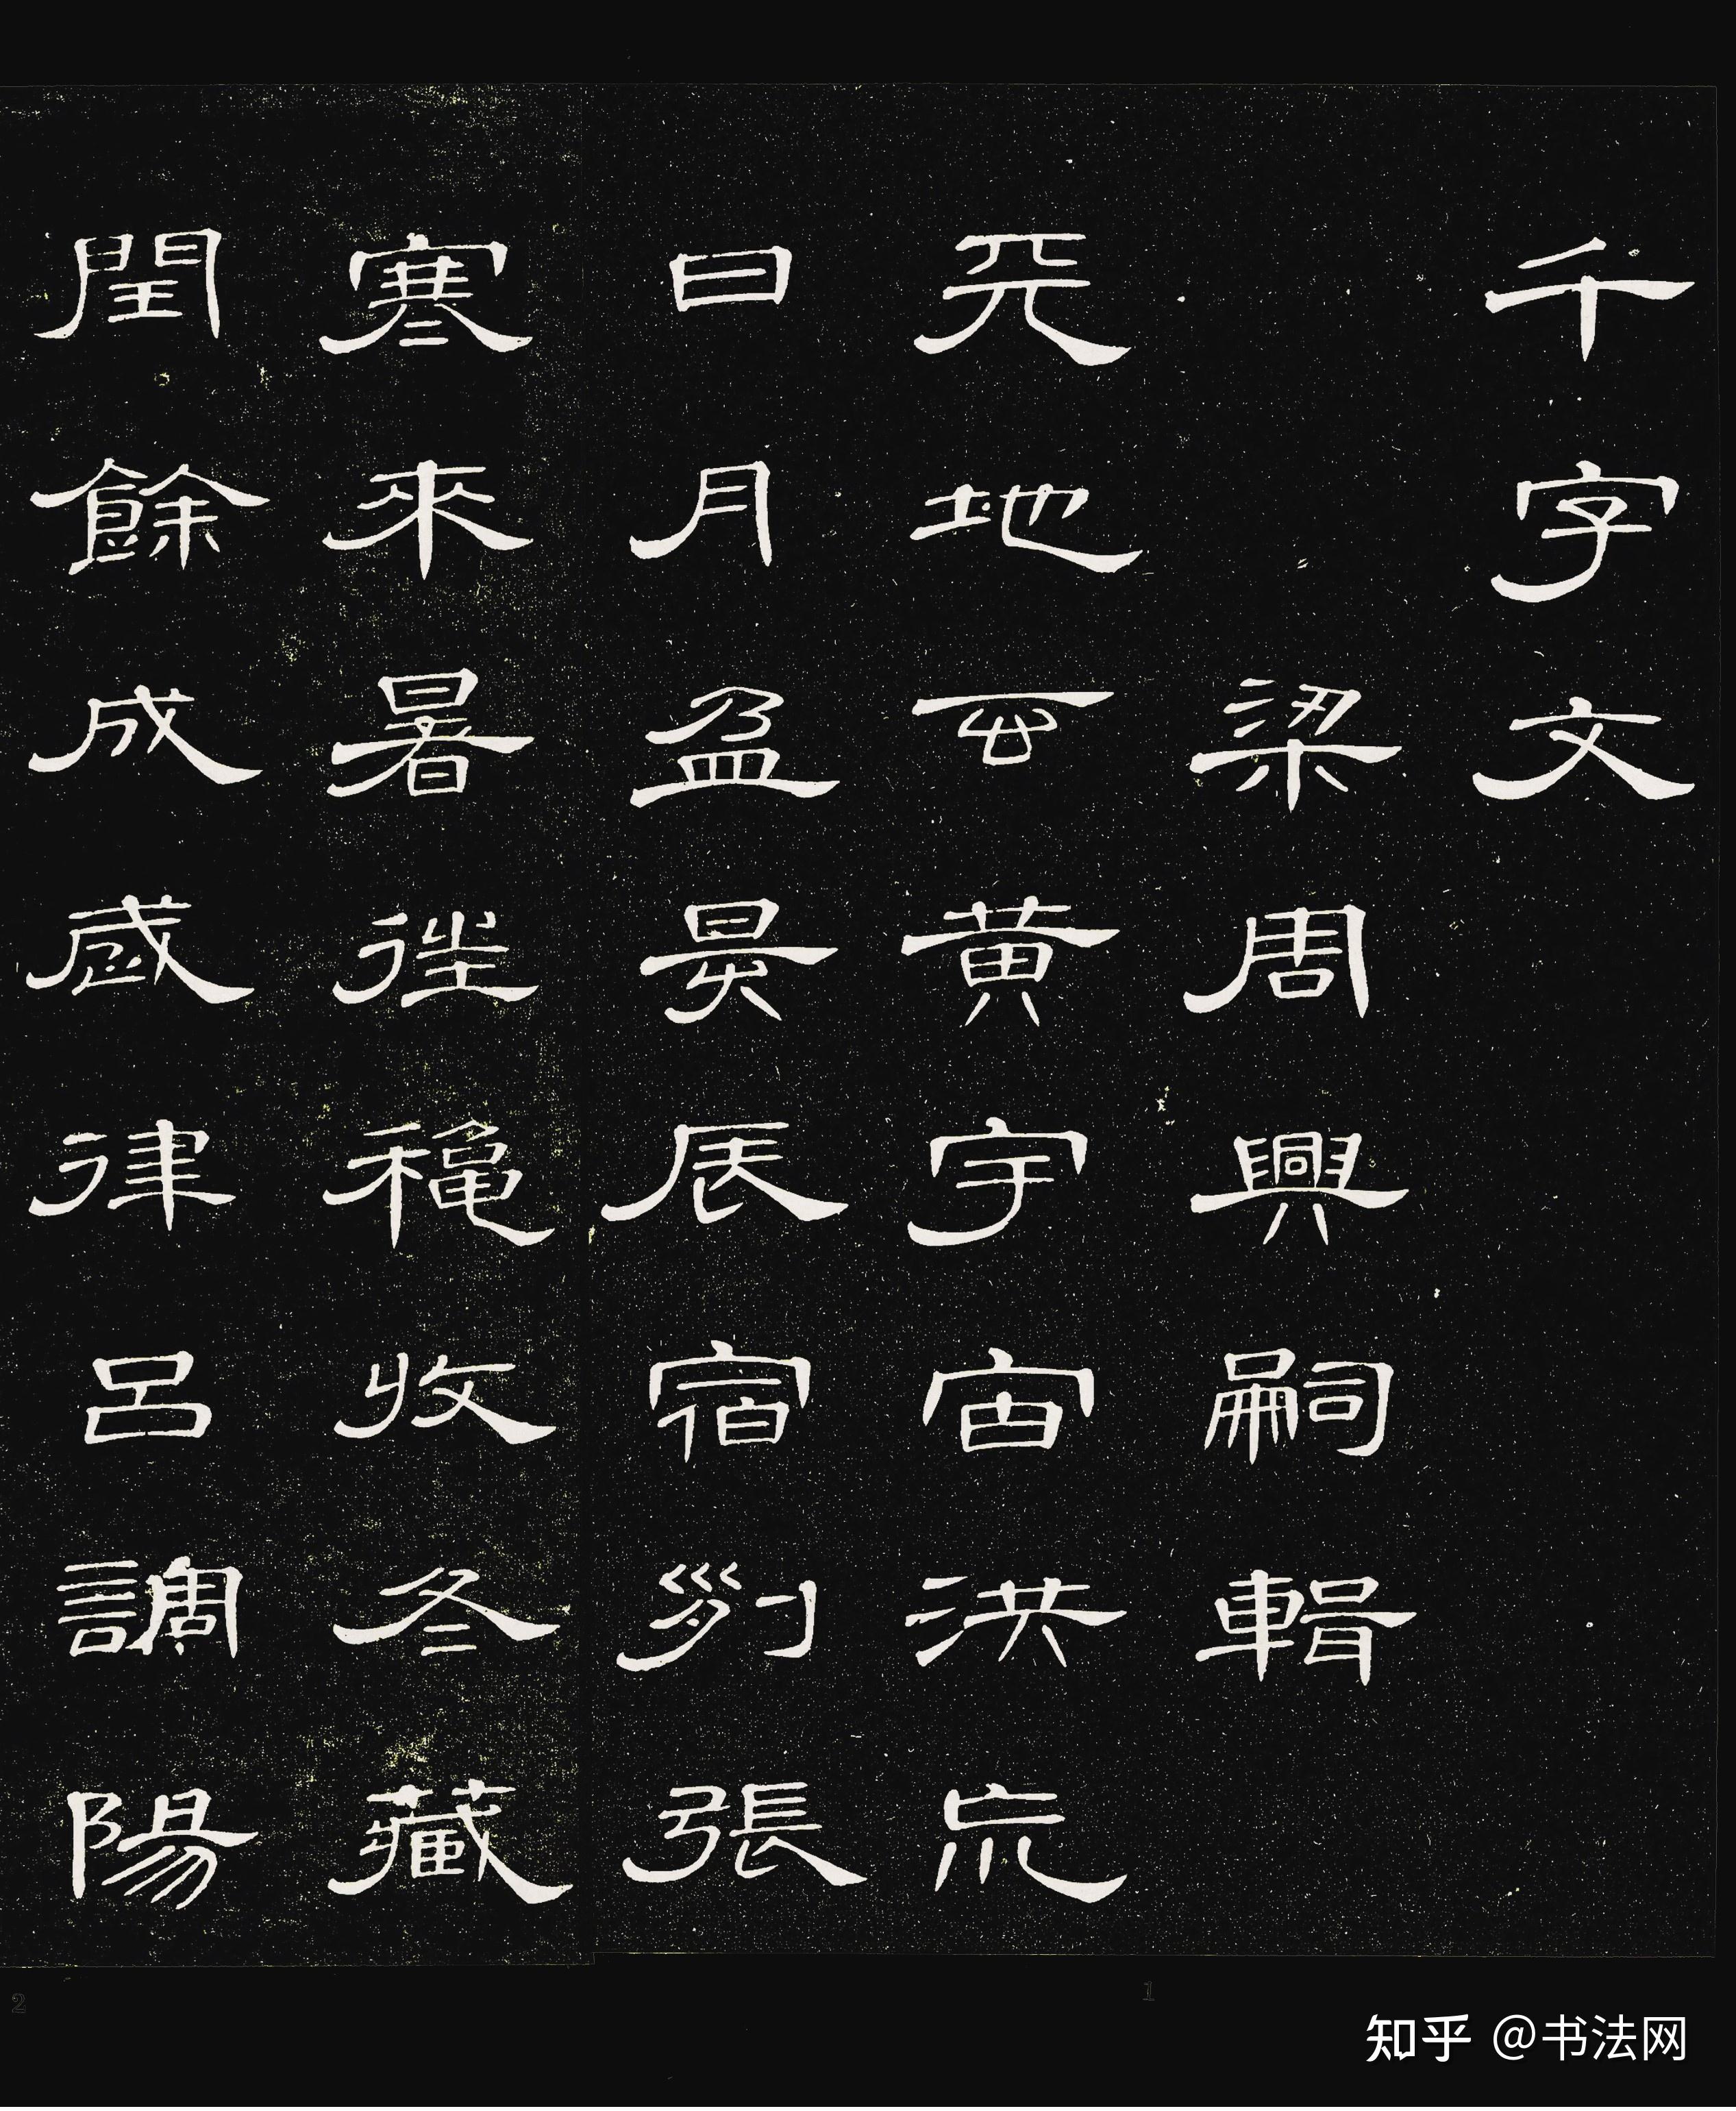 千字文
梁周興嗣輯
天地玄黃宇宙洪荒
日月盈昃辰宿列張
寒來暑往穐收冬藏
閏餘成歲律呂調陽
2
1
知乎 @书法网